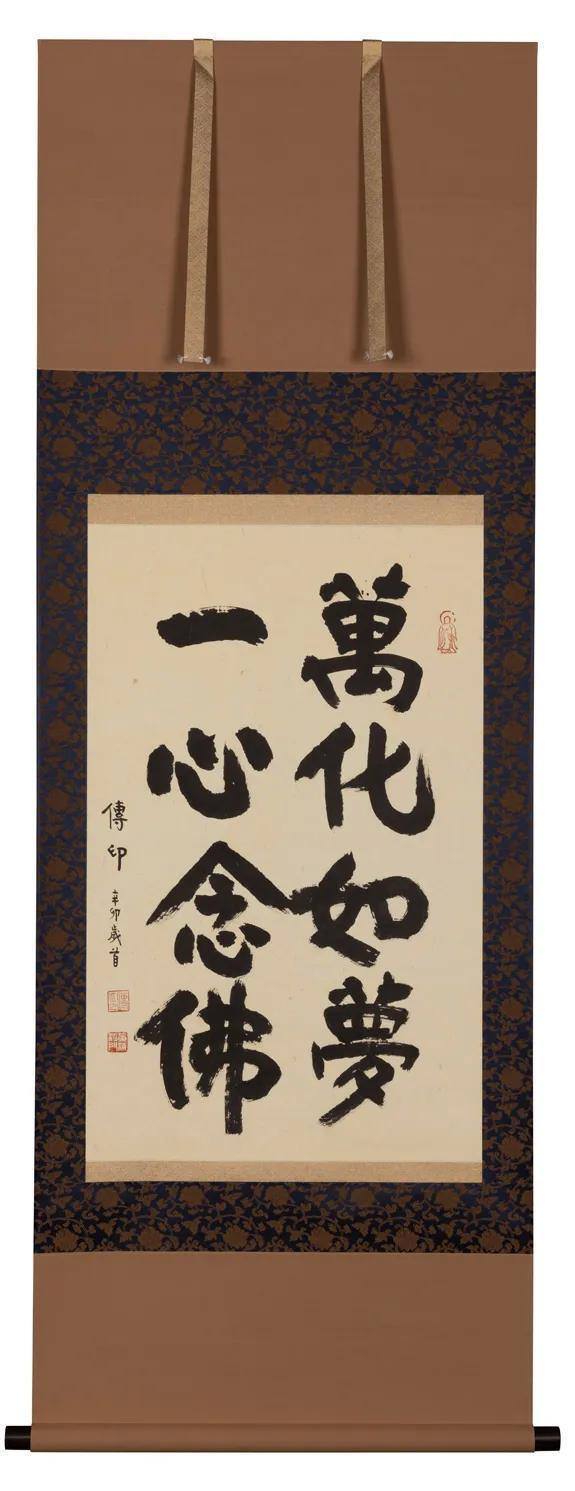 萬化如夢
一心念佛
傳印
辛卯歲首